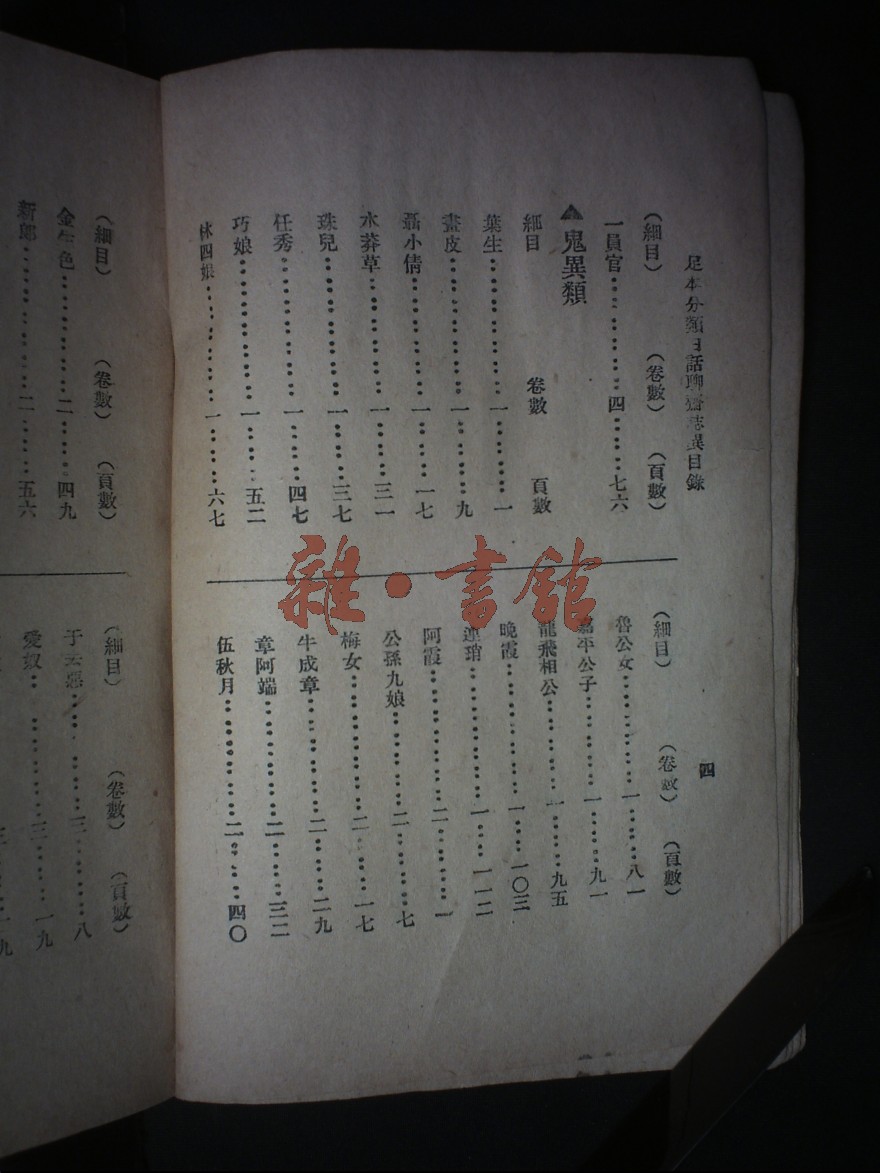 足本分類白話聊齋誌異目錄
四
(細目) (卷數) (頁數)
一員官………四……七六
▲鬼異類
細目 卷數 頁數
葉生………一………一
畫皮………一………九
聶小倩………一………一七
水莽草………一………三一
珠兒………一………三七
任秀………一………四七
巧娘………一………五二
林四娘………一………六七
(細目) (卷數) (頁數)
魯公女………一………八一
嘉平公子………一………九一
龍飛相公………一………九五
晚霞………一………一〇三
連瑣………一………一一二
阿霞………二………一
公孫九娘………二………七
梅女………二………一七
牛成章………二………二九
章阿端………二………三二
伍秋月………二………四〇
(細目) (卷數) (頁數)
金生色………二………四九
新郎………二………五六
(細目) (卷數) (頁數)
于去惡………三………八
愛奴………三………一九
雜·書館